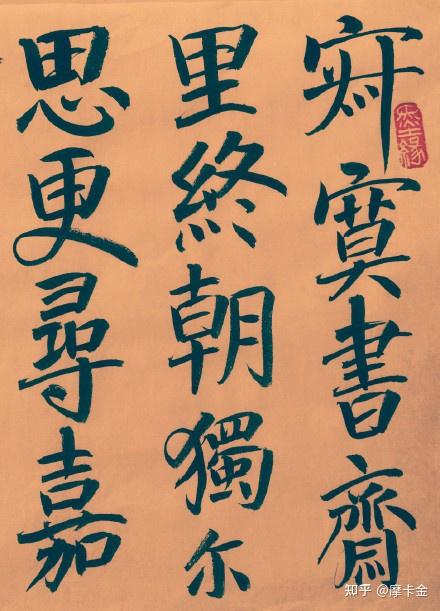 寂寞書齋
里終朝獨尔
思更尋嘉
知乎 @摩卡金